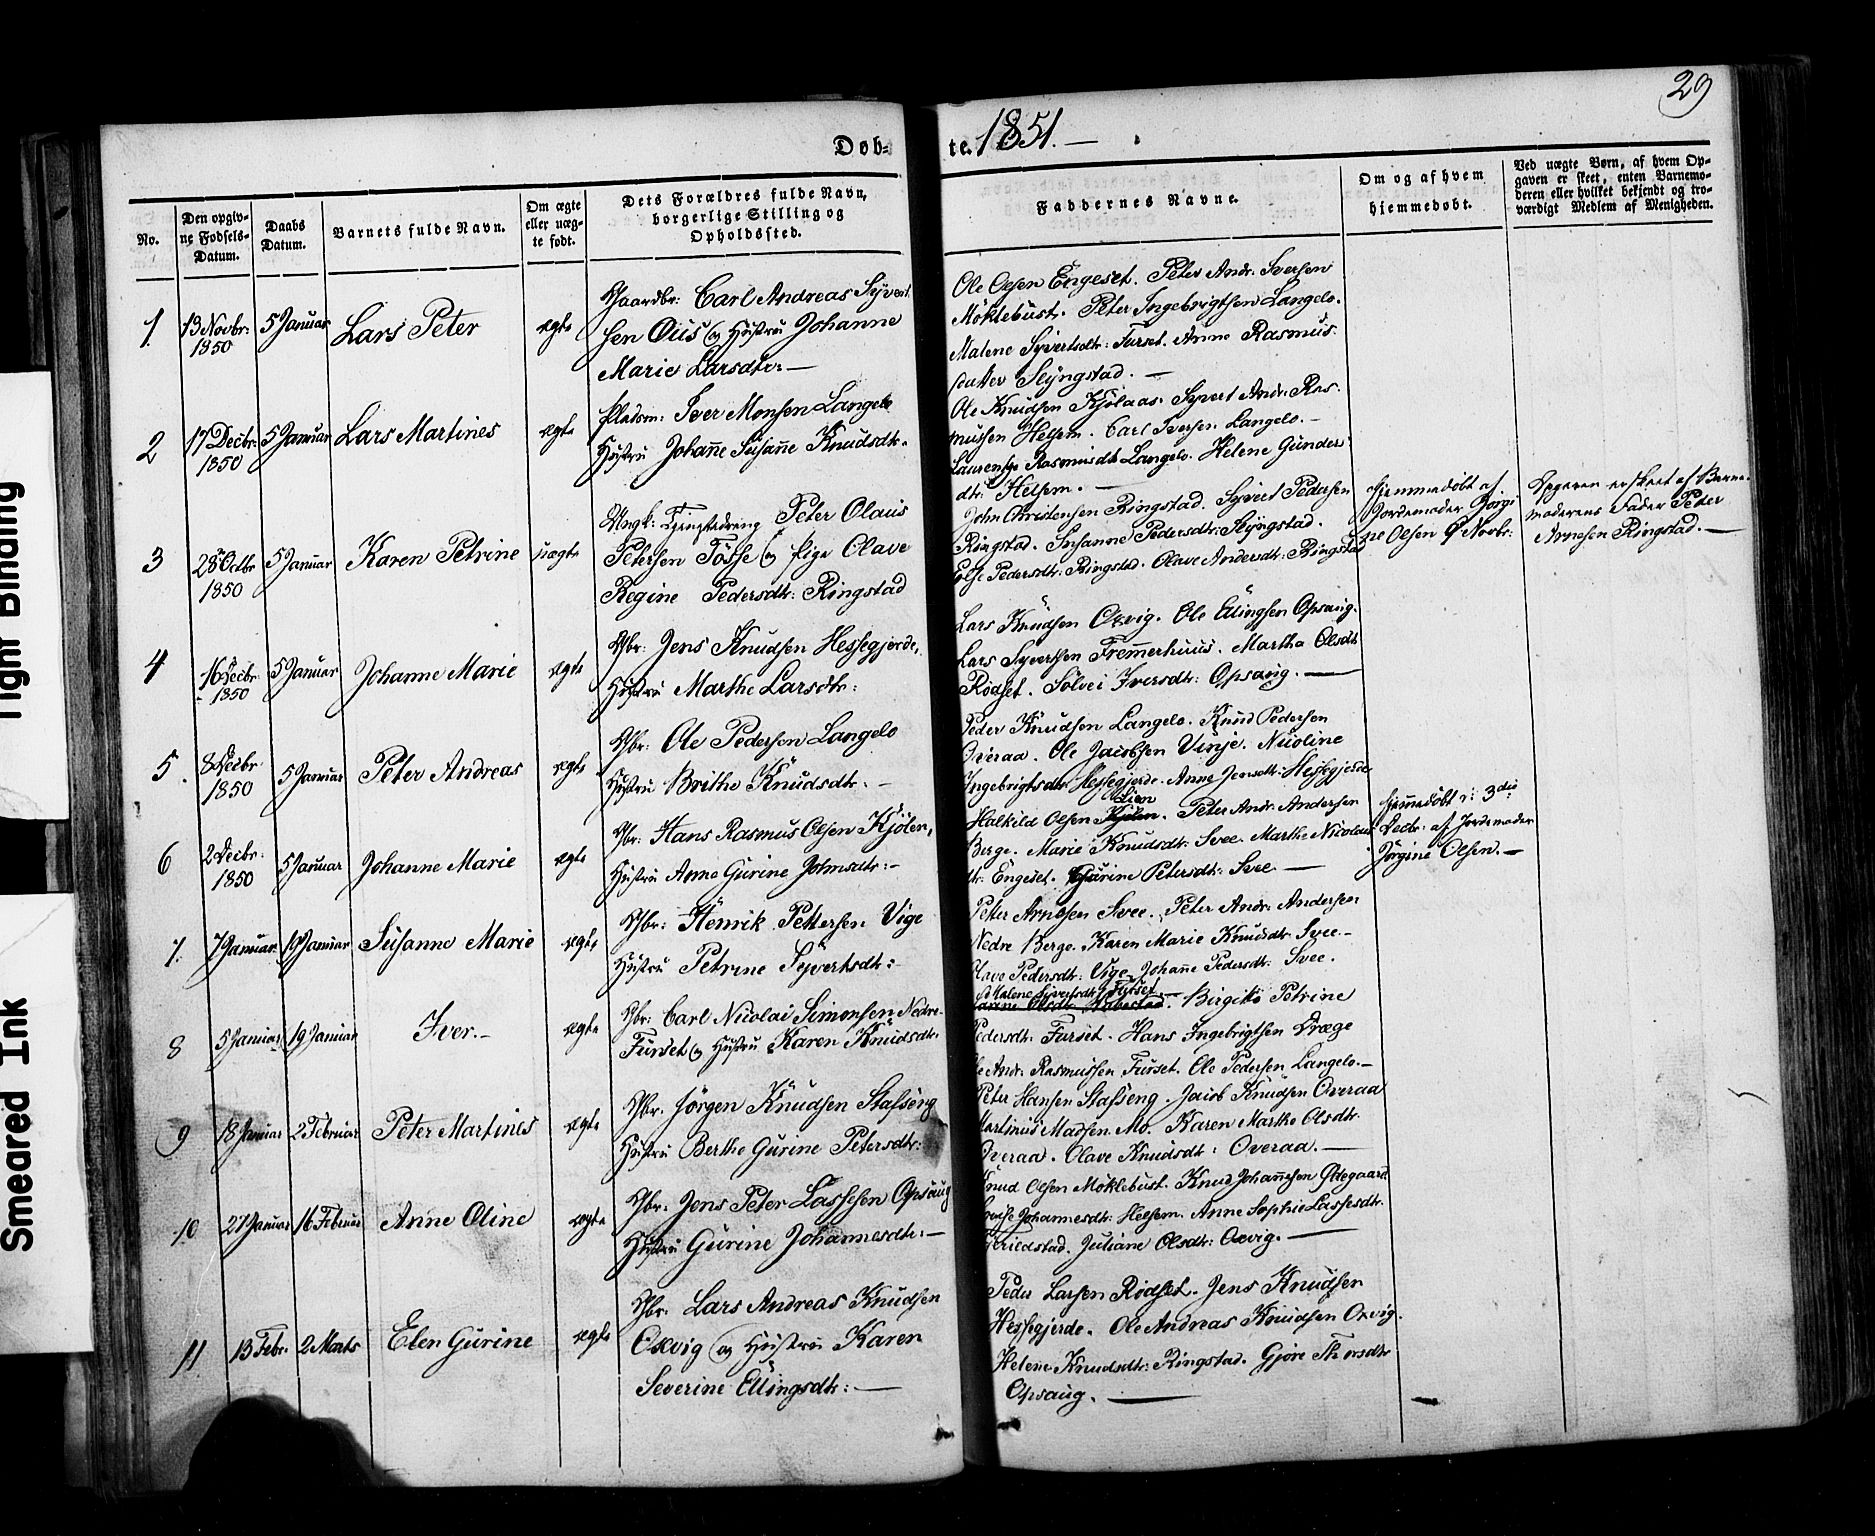 29
Døb-
te. 1851. —
No.
Den opgiv-
ne Fødsels-
Datum.
Daabs
Datum.
Barnets fulde Navn.
Om ægte
eller uæg-
te født.
Dets Forældres fulde Navn,
borgerlige Stilling og
Opholdssted.
Faddernes Navne.
Om og af hvem
hjemmedøbt.
Ved uægte Børn, af hvem Op-
gaven er skeet, enten Barnemo-
deren eller hvilket bekjendt og tro-
værdigt Medlem af Menigheden.
1.
13 Novbr:
1850
5 Januar
Lars Peter
ægte
Gaardbr: Carl Andreas Syvert
sen Øiis og Hustru Johanne
Marie Larsdtr: —
Ole Olsen Engeset. Peter Andr. Iversen
Möklebust. Peter Ingebrigtsen Langelo.
Malene Syvertsdtr: Furset. Anne Rasmus:
datter Slyngstad. —
2
17 Decbr:
1850
5 Januar
Lars Martines
ægte
Pladsm: Iver Monsen Langelo
Hustru Johañe Susañe Knudsdtr.
Ole Knudsen Kjölaas. Syvert Andr. Ras-
mussen Helsem. Carl Iversen Langelo. —
Laurentse Rasmusdtr Langelo. Helene Gunders
dtr: Helsem. —
3
28 Octbr
1850
5 Januar
Karen Petrine
uægte
Ungk: Peter Olaus
Petersen Tösse og Pige Olave
Regine Pedersdtr: Ringstad
John Christensen Ringstad. Syvert Pedersen
Ringstad. Susanne Pedersdtr: Slyngstad.
Pedersdtr: Ringstad. Olave Andersdtr: Ringstad
Hjemmedøbt af
Jordemoder Jörgi
ne Olsen Novbr:
Opgaven er skeet af Barne-
moderens Fader Peter
Arnesen Ringstad. —
4
16 Decbr
1850
5 Januar
Johanne Marie
ægte
Gbr: Jens Knudsen Hessegjerde,
Hustru Marthe Larsdtr:
Lars Knudsen Oxvig. Ole Ellingsen Opsaug.
Lars Syvertsen Fremerhuus. Martha Olsdtr
Rödset. Solvei Iversdtr: Opsaug. —
5.
8 Decbr
1850
5 Januar
Peter Andreas
ægte
Gbr: Ole Pedersen Langelo
Hustru Brithe Knudsdtr. —
Peder Knudsen Langelo. Knud Pedersen
Overaa. Ole Jacobsen Vinje. Nicoline
Ingebrigtsdtr Hessegjerde. Anne Jensdtr: Hessegjerde
6
2 Decbr:
1850
5 Januar
Johanne Marie
ægte
Gbr: Hans Rasmus Olsen Kjölen,
Hustru Anne Gurine Johnsdtr: —
Lien
Halkild Olsen Kjölen. Peter Andr. Andersen
Berge. Marie Knudsdtr: Svee. Marthe Nicolai
dtr: Engeset. Gurine Petersdtr: Svee —
hjemmedöbt d: 3die
Decbr: af Jordemoder
Jörgine Olsen. —
7.
7 Januar
19 Januar
Susanne Marie
ægte
Gbr: Henrik Pettersen Vige
Hustru Petrine Syvertsdtr: -
Peter Arnesen Svee. Peter Andr. Andersen
Nedre Berge. Karen Marie Knudsdtr. Svee —
Olave Pedersdtr: Vige. Johañe Pedersdtr: Svee.
8
5 Januar
19 Januar
Iver. —
ægte
Gbr: Carl Nicolai Simonsen Nedre-
Furset og Hustru Karen Knudsdtr:
Malene Syvertsdtr Furset
Olsdtr. Birgitte Petrine
Pedersdtr: Furset. Hans Ingebrigtsen Dræge
Ole Andr. Rasmussen Furset. Ole Pedersen Langelo. —
9
18 Januar
2 Februar
Peter Martines
ægte
Gbr. Jörgen Knudsen Stafseng
Hustru Berthe Gurine Petersdtr:
Peter Hansen Stafseng. Jacob Knudsen Overaa
Martinus Madsen Mo. Karen Marthe Olsdtr:
Overaa. Olave Knudsdtr: Overaa. —
10
27 Januar
16 Februar
Anne Oline
ægte
Gbr. Jens Peter Lassesen Opsaug
Hustru Gurine Johannesdtr: —
Knud Olsen Möklebust. Knud Johañesen Ödegaard.
Johannesdtr: Helsem. Anne Sophie Lassesdtr.
Juliane Olsdtr: Oxvig. —
11
13 Febr.
2 Marts
Elen Gurine
ægte
Gbr. Lars Andreas Knudsen
Oxvig og Hustru Karen
Severine Ellingsdtr: —
Peder Larsen Rödset. Jens Knudsen
Hessegjerde. Ole Andreas Knudsen Oxvig.
Helene Knudsdtr: Ringstad. Gjöre Thorsdtr
Opsaug. —
Tight Binding
Smeared Ink